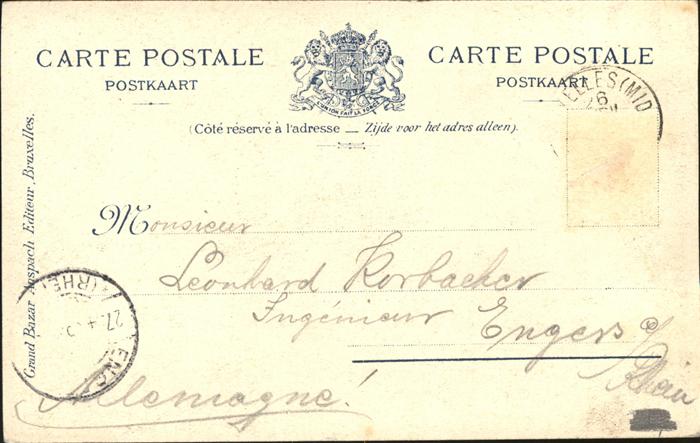 CARTE POSTALE CARTE POSTALE
POSTKAART POSTKAART
L'UNION FAIT LA FORCE
ELLES (MID
6
(Côté réservé à l'adresse — Zijde voor het adres alleen).
Grand Bazar Anspach Editeur, Bruxelles.
Monsieur
Leonhard Korbacher
Ingénieur Engers a/
Rhein
(RHE
27. 4
ENG
Allemagne!